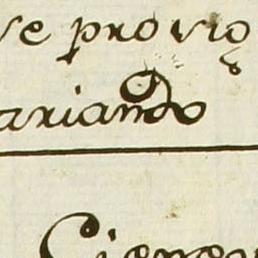 ve provio
ariando
Cierev